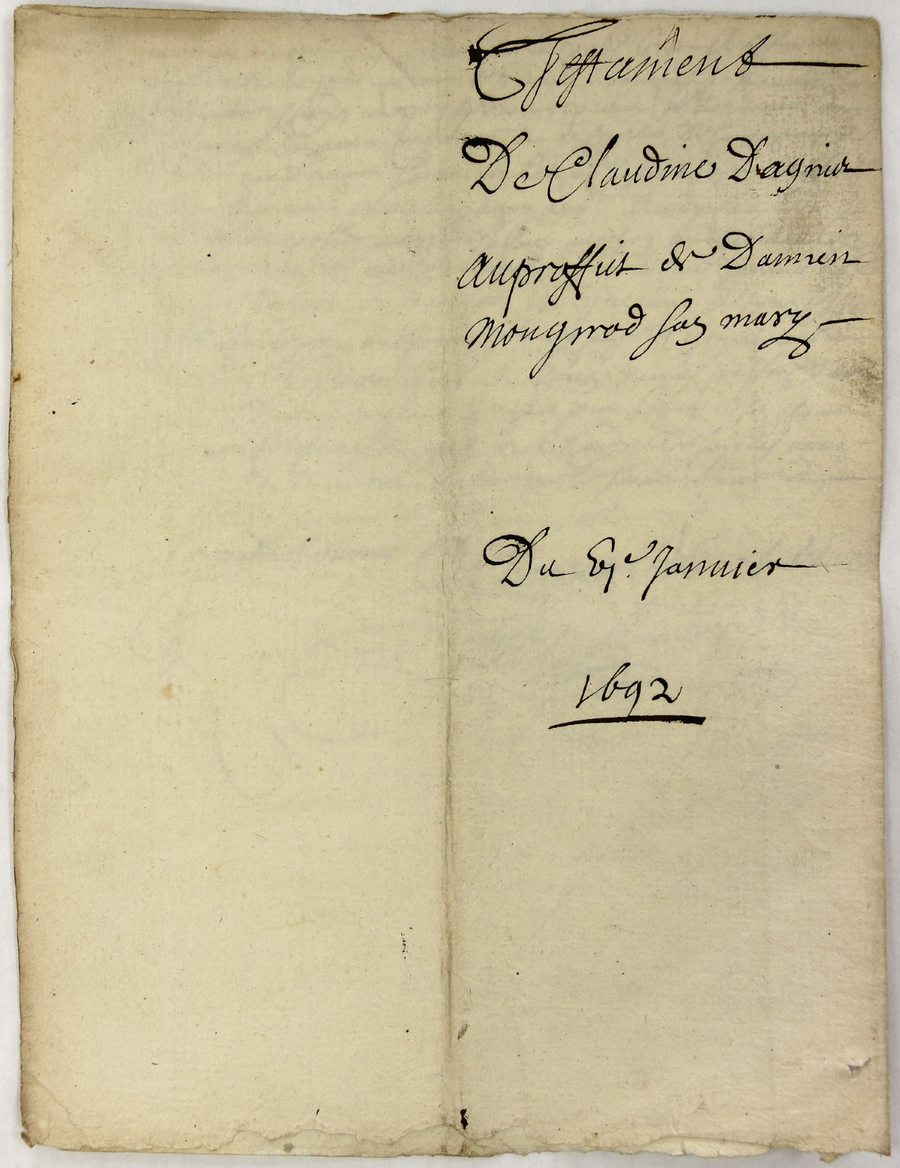 Testament
De Claudine Dagnier
Au proffict de Damien
Mongirod son mary
Du 6e. Janvier
1692